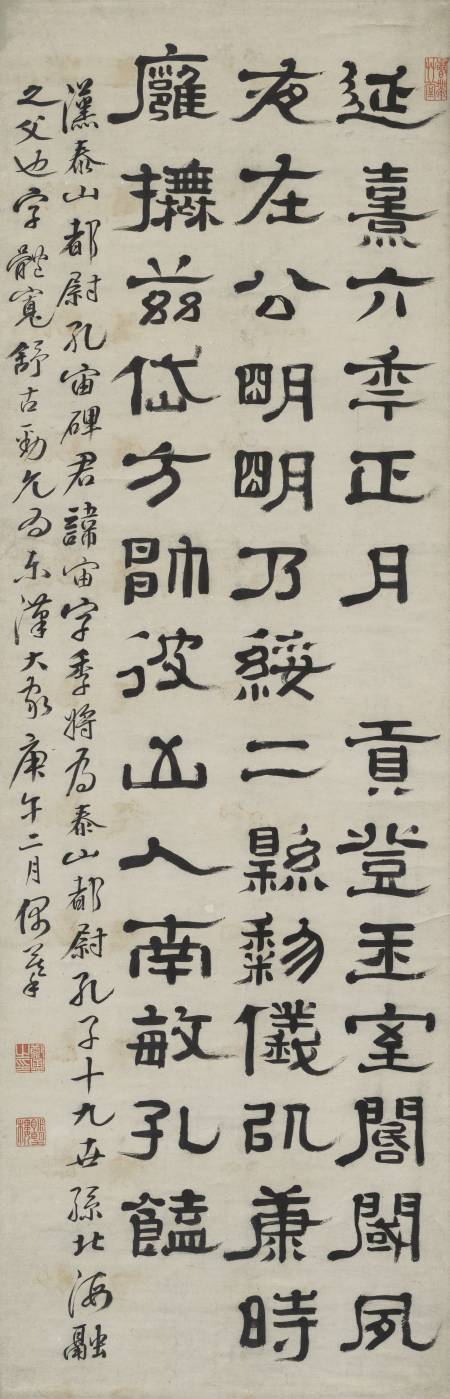 延熹六季正月 貢登王室閽閾夙
夜在公明明乃綏二縣黎儀㠯康時
廱撫兹岱方帥彼凶人南畝孔饁
漢泰山都尉孔宙碑君諱宙字季將為泰山都尉孔子十九世孫北海融
之父也字體寬舒古勁允為東漢大家庚午二月偶摹